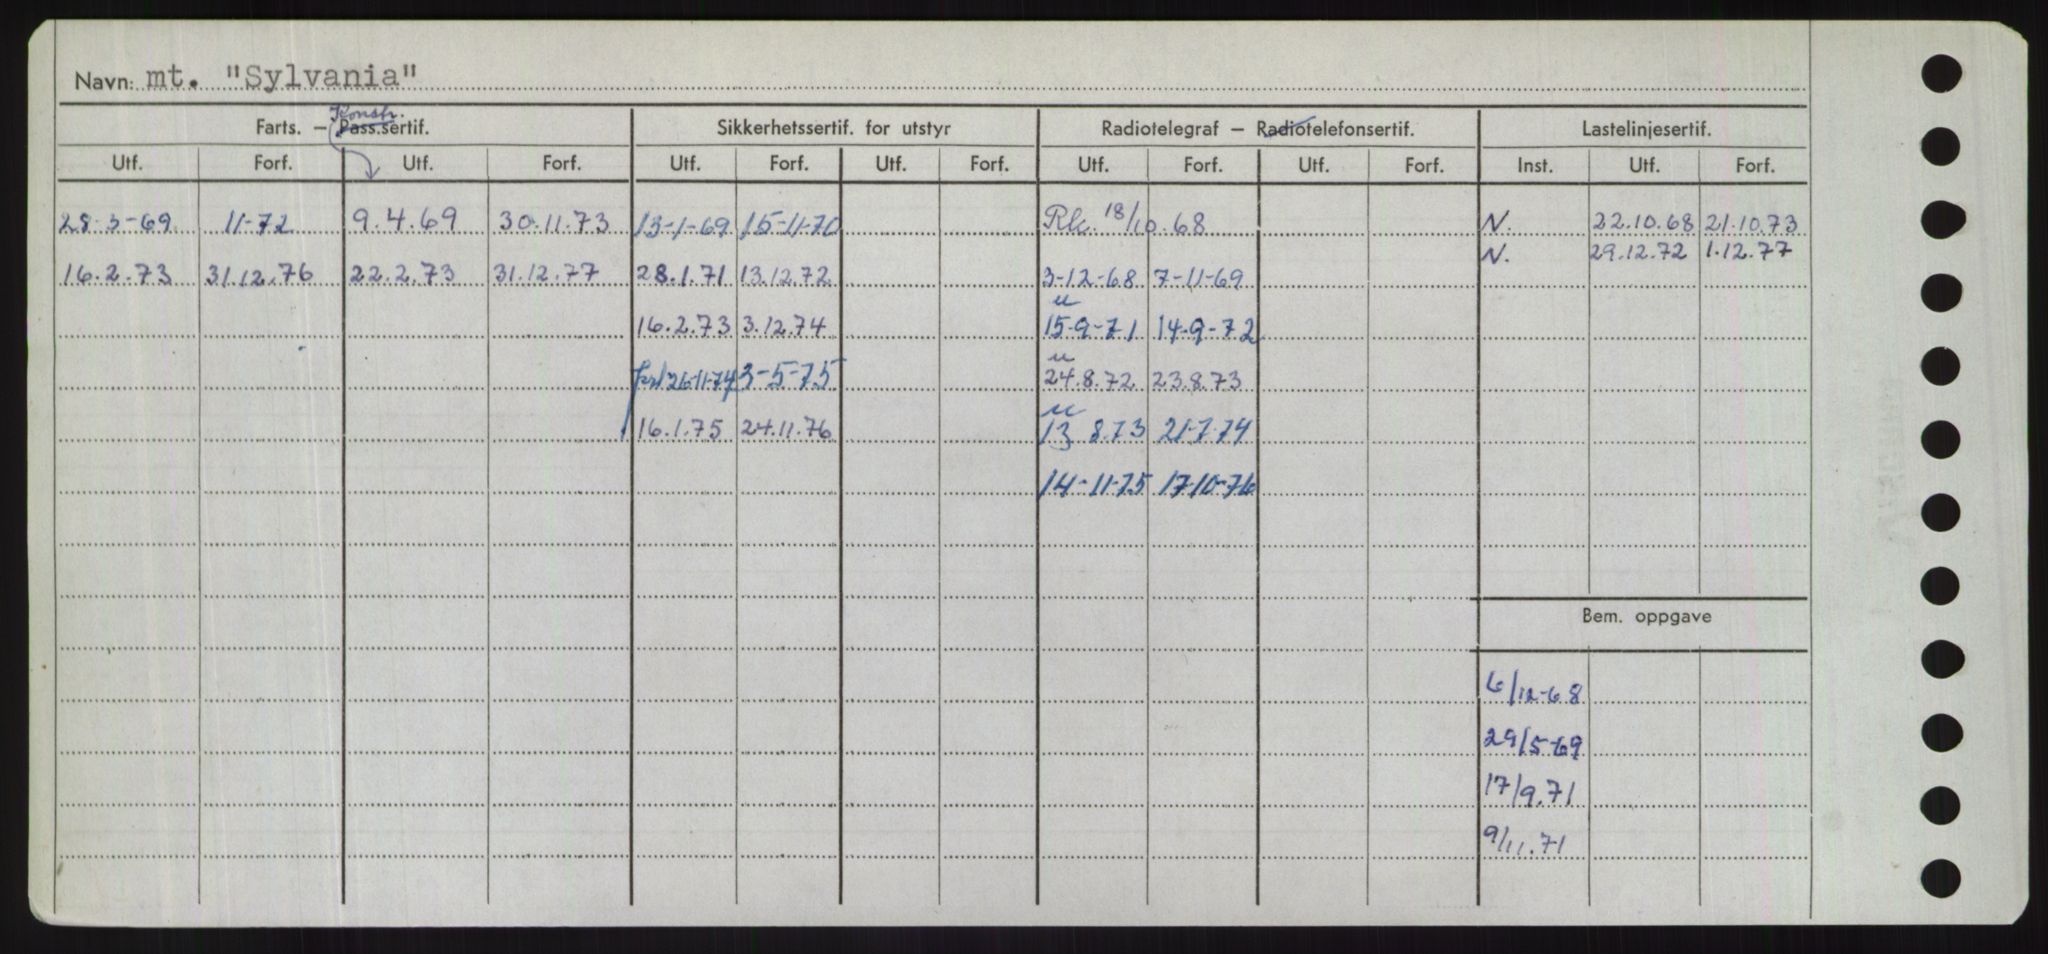 Navn: mt. "Sylvania"
Konstr.
Farts. – Pass.sertif. Sikkerhetssertif. for utstyr Radiotelegraf – Radiotelefonsertif. Lastelinjesertif.
Utf. Forf. Utf. Forf. Utf. Forf. Utf. Forf. Utf. Forf. Utf. Forf. Inst. Utf. Forf.
28-3-69 11-72 9.4.69 30.11.73 13-1-69 15-11-70 18/10.68 N. 22.10.68 21.10.73
N. 29.12.72 1.12.77
16.2.73 31.12.76 22.2.73 31.12.77 28.1.71 13.12.72 3-12-68 7-11-69
u
16.2.73 3.12.74 15-9-71 14-9-72
u
26-11-74 3-5-75 24.8.72 23.8.73
u
16.1.75 24.11.76 13 8.73 21-7-74
14-11-75 17-10-76
Bem. oppgave
6/12-68
29/5-69
17/9.71
9/11.71